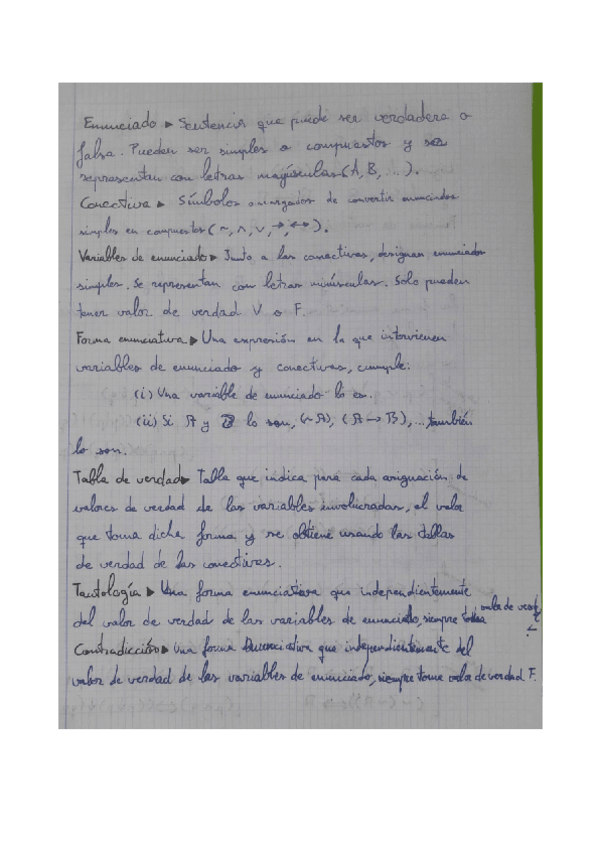 Enunciado ▸ Sentencia que puede ser verdadera o
falsa. Pueden ser simples o compuestos y se
representan con letras mayúsculas (A, B, ...).
Conectiva ▸ Símbolos encargados de convertir enunciados
simples en compuestos (~, ∧, ∨, →, ↔).
Variables de enunciado ▸ Junto a las conectivas, designan enunciados
simples. Se representan con letras minúsculas. Solo pueden
tener valor de verdad V o F.
Forma enunciativa ▸ Una expresión en la que intervienen
variables de enunciado y conectivas, cumple:
(i) Una variable de enunciado lo es.
(ii) Si A y B lo son, (~A), (A → B), ..., también
lo son.
Tabla de verdad ▸ Tabla que indica para cada asignación de
valores de verdad de las variables involucradas, el valor
que toma dicha forma y se obtiene usando las tablas
de verdad de las conectivas.
Tautología ▸ Una forma enunciativa que independientemente
del valor de verdad de las variables de enunciado, siempre toma valor de verdad
Contradicción ▸ Una forma enunciativa que independientemente del
valor de verdad de las variables de enunciado, siempre toma valor de verdad F.